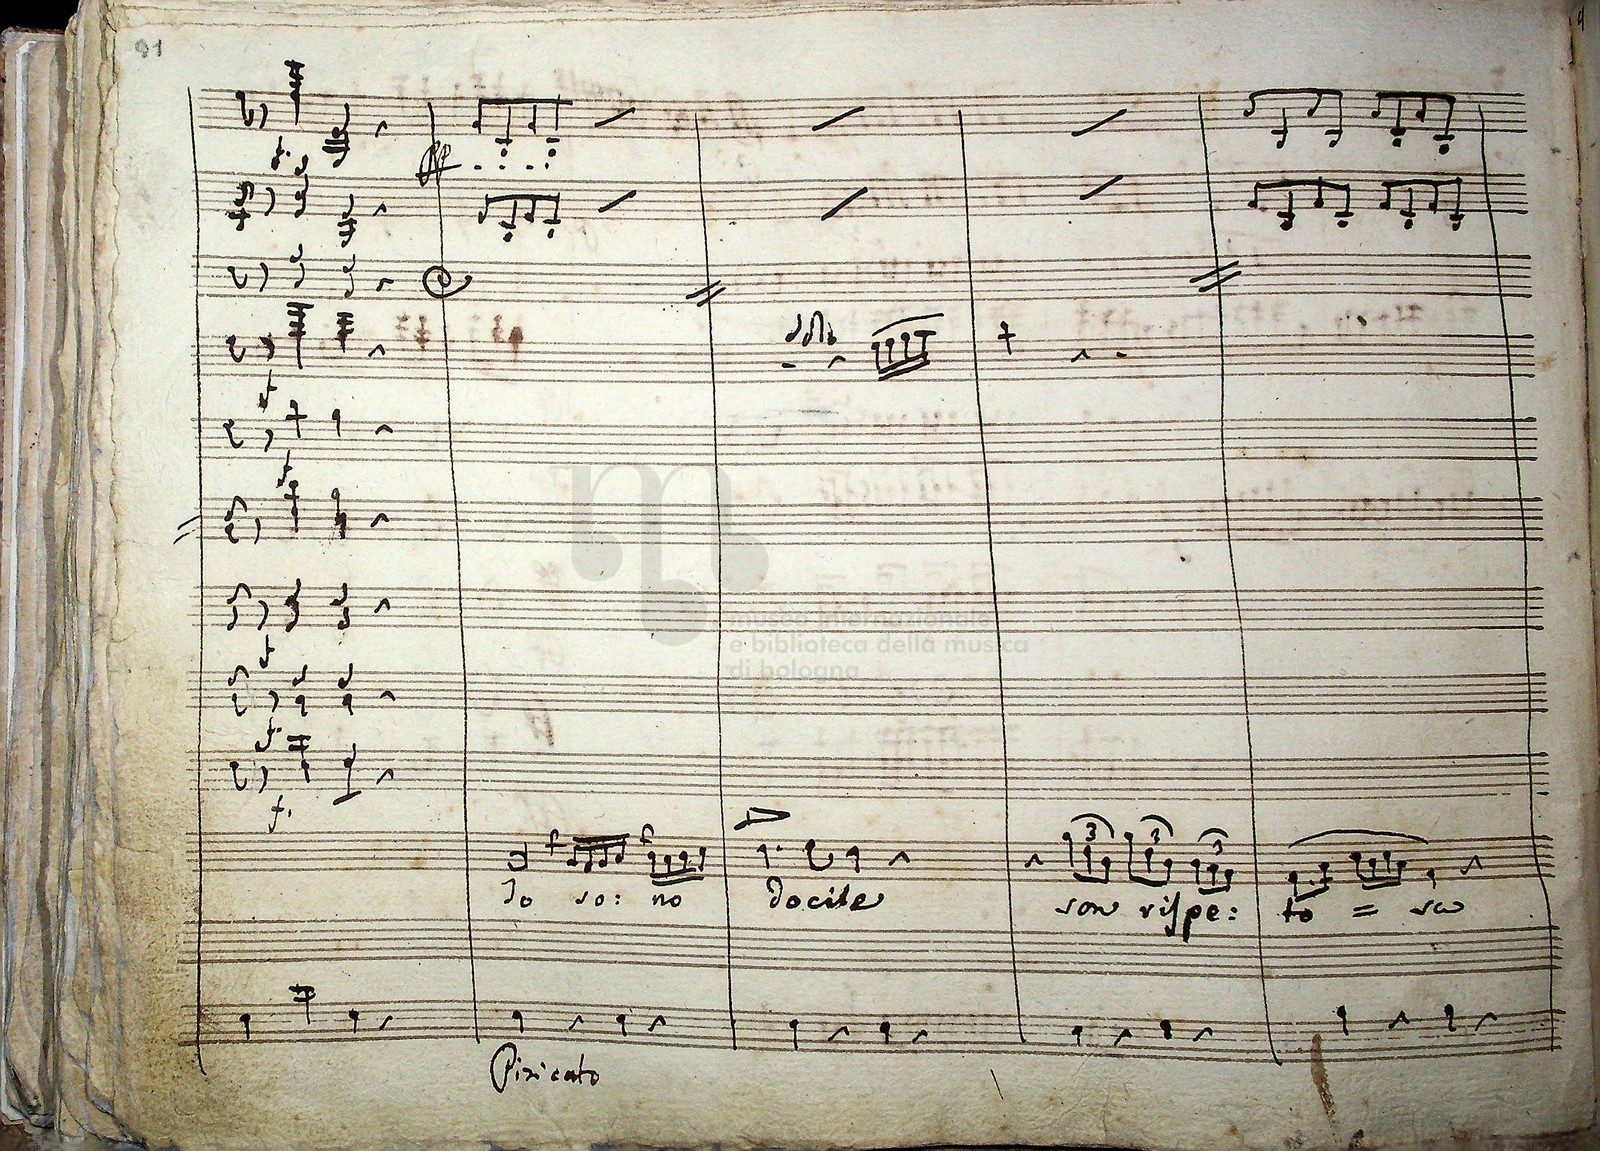 91
f.
pp
f
f
f
f.
f.
3 3 3
Jo so: no docile son rispe: to = sa
Pizicato
museo internazionale
e biblioteca della musica
di bologna